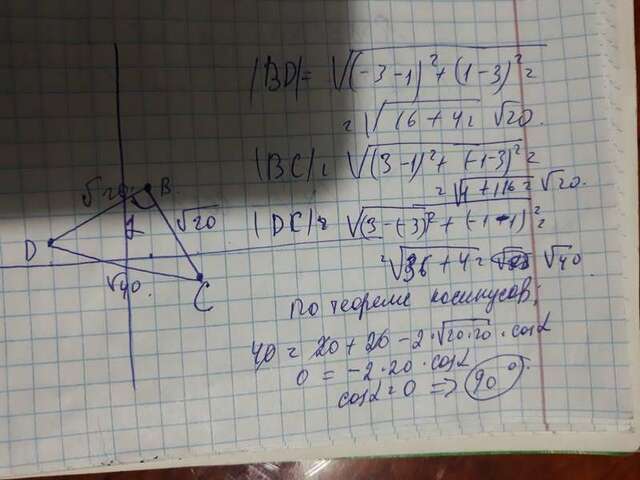 |BD| = √(-3-1)²+(1-3)² =
= √16+4 = √20.
|BC| = √(3-1)²+(-1-3)² =
= √4+16 = √20.
|DC| = √(3-(-3))²+(-1-1)² =
= √36+4 = √40
По теореме косинусов:
40 = 20+20-2·√20·20·cosα
0 = -2·20·cosα
cosα=0 => 90°.
√20
B
√20
α
D
√40.
C